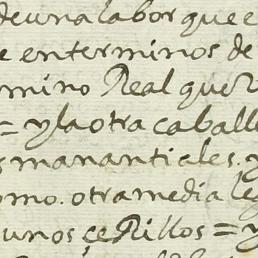 deuna labor que e
e enterminos de
mino Real que
= yla otra caball
s manantiales. y
omo. otra media le
unos çeRillos = y